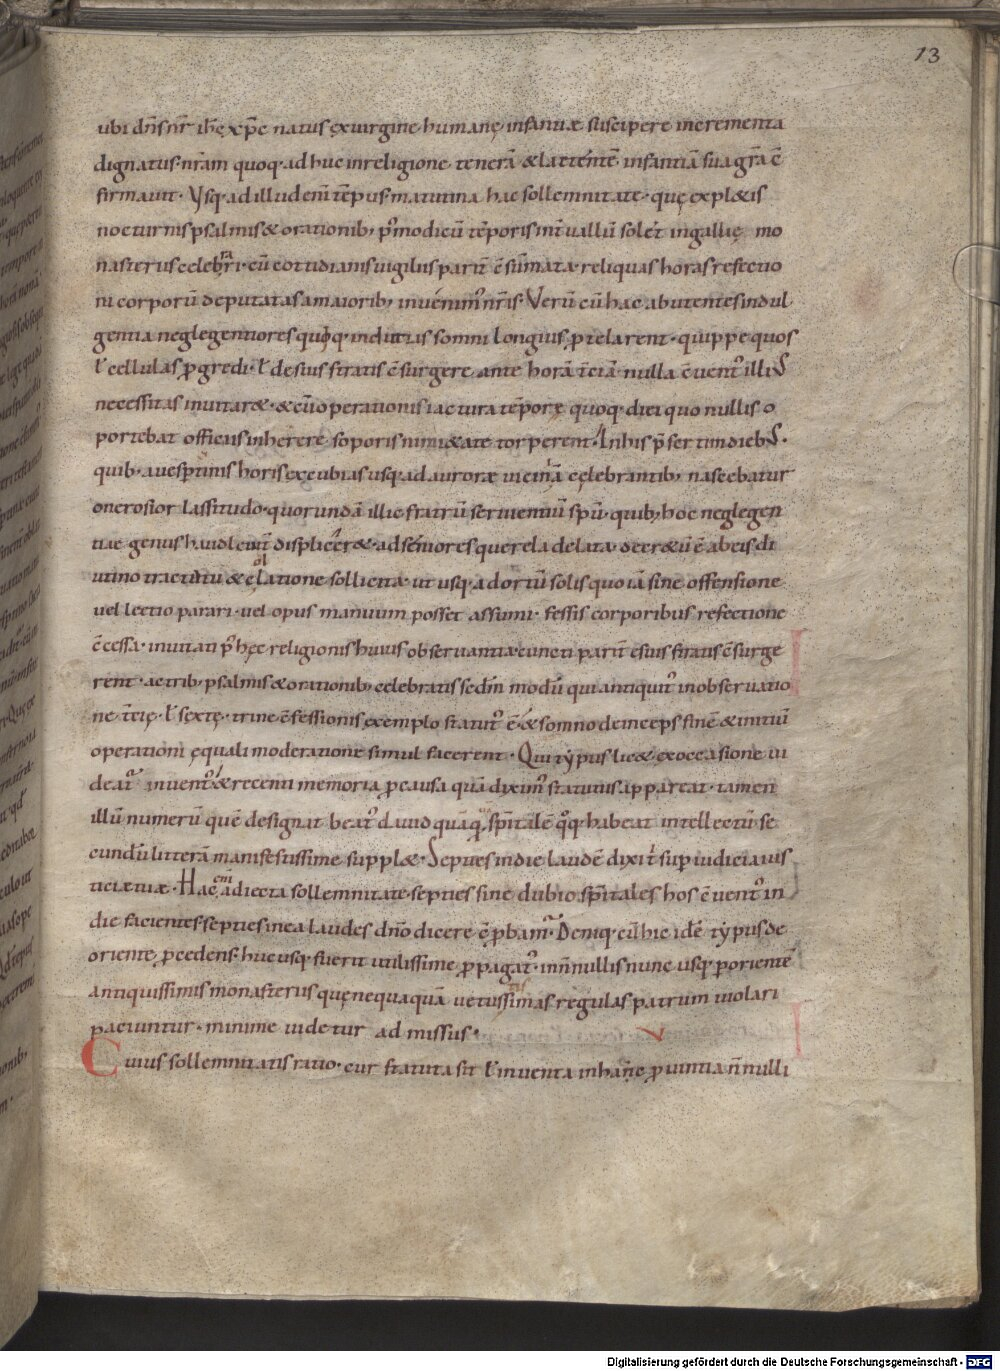 13
ubi dn̄s nr̄ ih̄c xp̄c natus ex uirgine humanę infantiæ suscipere incrementa
dignatus· nr̄am quoq· ad huc in religione tenerā & lactentē infantiā sua gr̄a c̄
firmauit· Vsq· ad illud enī tēpus matutina hac sollemnitate· quę expl&is
nocturnis psalmis & orationib; p modicū tēporis int̄uallū sol& in gallię mo
nasteriis celebrari· cū cotidianis uigiliis parit̄ c̄sūmata· reliquas horas refectio
ni corporū deputatas a maiorib; inuenim nr̄is· Verū cū hac abutentes indul
gentia neglegentiores quiq· in diutius somni longius ptelarent· quippe quos
ł cellulas pgredi· ł de suis stratis c̄surgere ante horā t̄ciā nulla c̄uent illiS
necessitas inuitar&· & cū operationis iactura tēpore quoq· diei quo nullis o
portebat officiis inherere soporis nimi&ate torperent· In his p̄sertim dieb;S·
quib· a uesptinis horis excubias usq· ad auroræ uicinā celebrantib; nascebatur
onerosior lassitudo· quorundā illic fratrū seruientiū spū· quib; hoc neglegen
tiae genus haud leuit̄ displicer& · ad seniores querela delata· decr&ū ē ab eis di
utino tractatu & colatione sollicita· ut usq· ad ortū solis quo iā sine offensione
uel lectio parari· uel opus manuum posset assumi· fessis corporibus refectione
c̄cessa· inuitati p hęc religionis huius obseruantia cuncti parit̄ e suis stratis c̄surge
rent· ac trib; psalmis & orationib; celebratis sedm̄ modū qui antiquit in obseruatio
ne t̄cię· ł sextę· trine c̄fessionis exemplo statut ē· & somno deinceps finē & initiū
operationi ęquali moderatione simul facerent· Qui typus lic& ex occasione ui
deat inuent & recenti memoria p causa quā dixim statutus appareat· tamen
illū numerū quē designat beat dauid quāquā spītalē qq· habeat intellectū se
cundū litterā manifestissime suppl&· Septies in die laudē dixi t̄ sup iudicia ius
ticiæ tuæ· Hac eni adiecta sollemnitate septies sine dubio spītales hos c̄uent in
die facientes septies in ea laudes dno dicere c̄pbam· Deniq· cū hic idē typus de
oriente pcedens huc usq· fuerit utilissime ppagat· in nn̄ullis nunc usq· p orientē
antiquissimis monasteriis quę nequaquā uetustissimas regulas patrum uiolari
paciuntur· minime uidetur ad missus·
Cuius sollemnitatis ratio· cur statuta sit ł inuenta in hanc puintia nn̄ulli
Digitalisierung gefördert durch die Deutsche Forschungsgemeinschaft - DFG